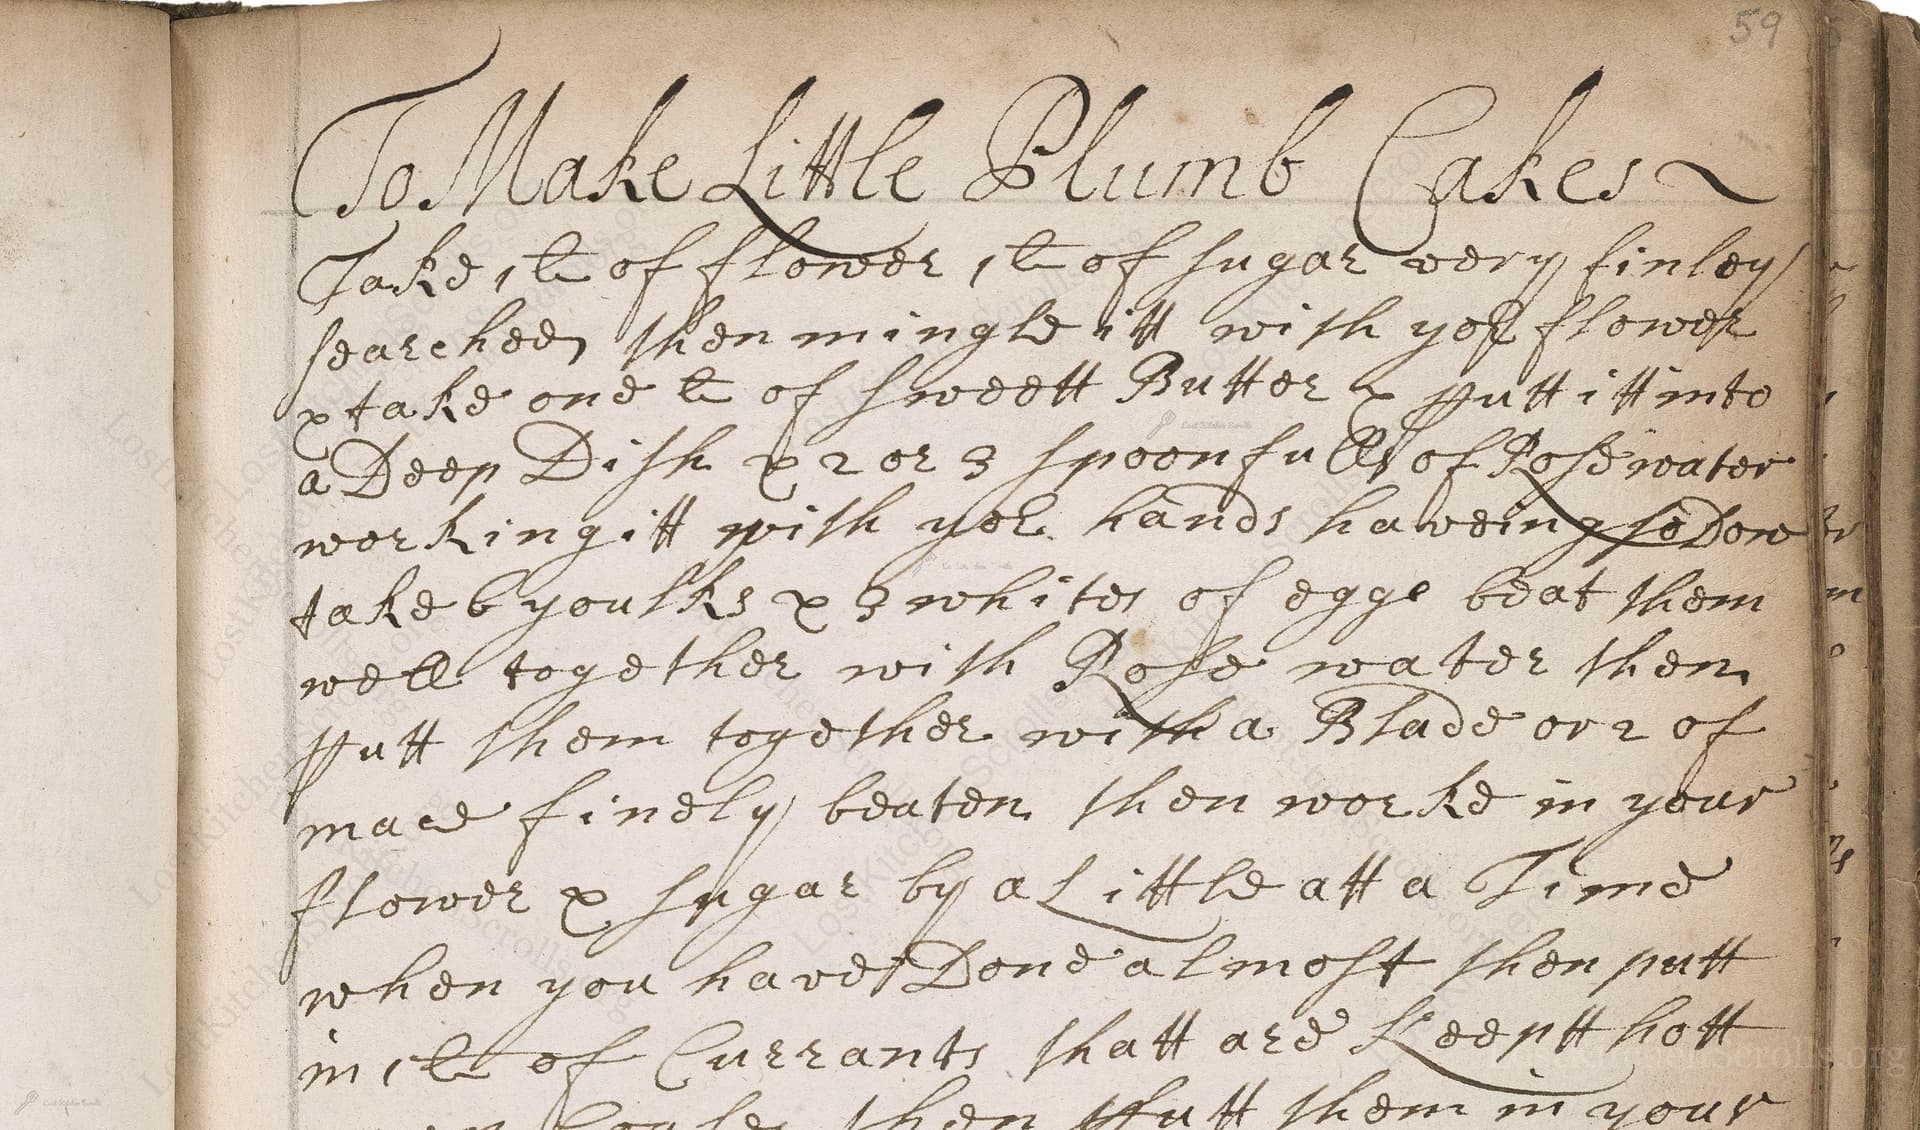 59
To Make Little Plumb Cakes
Take 1 lb of flower 1 lb of sugar very finley
searched then mingle itt with yor flower
& take one lb of sweett Butter & putt itt into
a Deep Dish & 2 or 3 spoonfulls of Rose water
working itt with yor hands haveing so Done
take 6 youlks & 3 whites of eggs beat them
well together with Rose water then
putt them together with a Blade or 2 of
mace finely beaten then worke in your
flower & sugar by a Little att a Time
when you have Done almost then putt
in 1 lb of Currants thatt are Keeptt hott
then putt them in your
LostKitchenScrolls.org